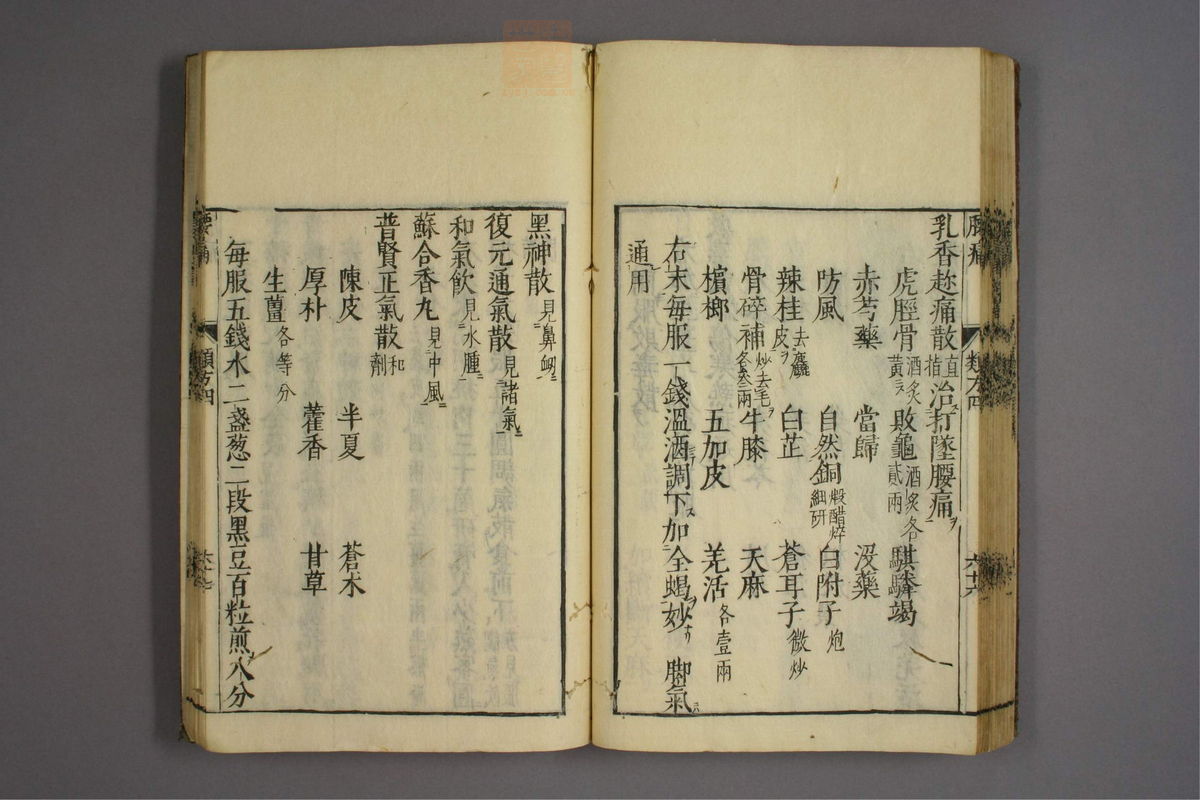 腰痛 類方四 六十六
乳香趂痛散 直指 治打墜腰痛
虎脛骨 酒炙黃 敗龜 酒炙各貳兩 騏驎竭
赤芍藥 當歸 沒藥
防風 自然銅 煅醋焠細研 白附子 炮
辣桂 去麤皮 白芷 蒼耳子 微炒
骨碎補 炒去毛各叁兩 牛膝 天麻
檳榔 五加皮 羌活 各壹兩
右末每服一錢溫酒調下加全蝎妙脚氣
通用
黑神散 見鼻衂
復元通氣散 見諸氣
和氣飮 見水腫
蘇合香丸 見中風
普賢正氣散 和劑
陳皮 半夏 蒼朮
厚朴 藿香 甘草
生薑 各等分
每服五錢水二盞葱二段黑豆百粒煎八分
腰痛 類方四 六十七